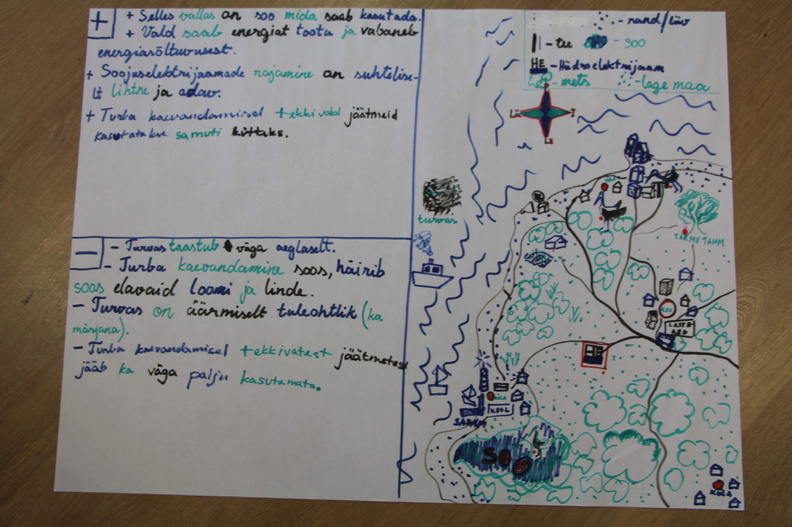 +
+ Selles vallas on soo mida saab kasutada.
+ Vald saab energiat toota ja vabaneb
energiasõltuvusest.
+ Soojuselektrijaamade rajamine on suhtelise-
lt lihtne ja odav.
+ Turba kaevandamisel tekkivaid jäätmeid
kasutatakse samuti kütteks.
-
- Turvas taastub väga aeglaselt.
- Turba kaevandamine soos, häirib
soos elavaid loomi ja linde.
- Turvas on äärmiselt tuleohtlik (ka
märjana).
- Turba kaevandamisel tekkivatest jäätmetest
jääb ka väga palju kasutamata.
- rand/liiv
- tee - soo
HE - Hüdroelektrijaam
- mets - lage maa
turvas
TAMME TAMM
LASTE-
AED
KOOL
SADAM
SOO
KÜLA